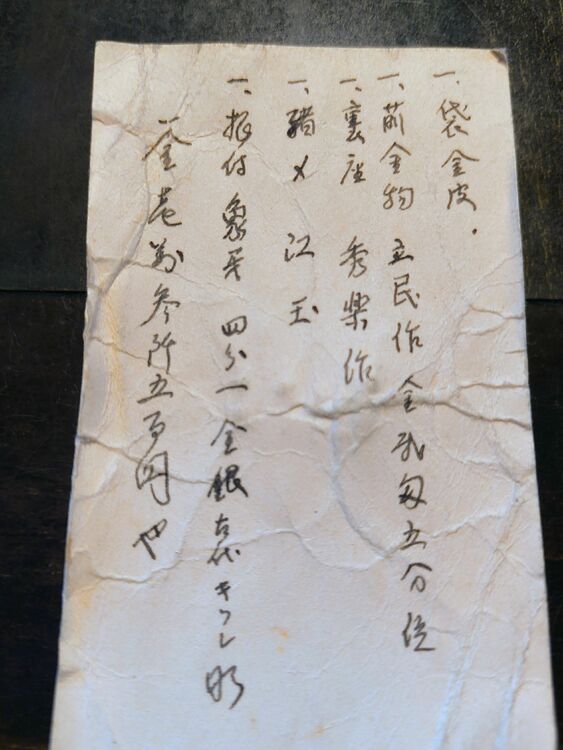 一、袋 金皮.
一、前金物 立民作 金弐匁五分位
一、裏座 秀楽作
一、緒〆 江玉
一、根付 象牙 四分一金銀古代キレ
一金壱万参阡五百円也